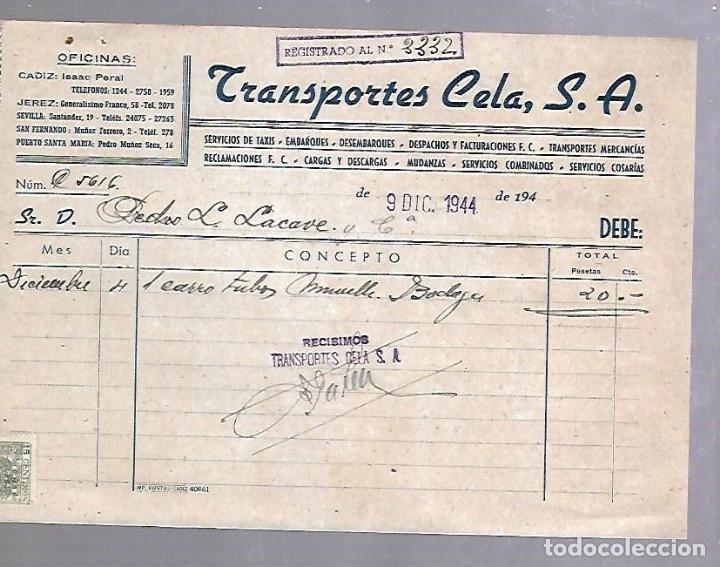 REGISTRADO AL N.º 3332
OFICINAS:
CADIZ: Isaac Peral
TELEFONOS: 1244 - 2758 - 1959
JEREZ: Generalísimo Franco, 58 - Tel. 2078
SEVILLA: Santander, 19 - Telfs. 24075 - 27263
SAN FERNANDO: Muñoz Torrero, 2 - Teléf. 278
PUERTO SANTA MARIA: Pedro Muñoz Seca, 16
Transportes Cela, S. A.
SERVICIOS DE TAXIS - EMBARQUES - DESEMBARQUES - DESPACHOS Y FACTURACIONES F. C. - TRANSPORTES MERCANCÍAS
RECLAMACIONES F. C. - CARGAS Y DESCARGAS - MUDANZAS - SERVICIOS COMBINADOS - SERVICIOS COSARÍAS
Núm. 5616
de 9 DIC. 1944 de 194
Sr. D. Pedro L. Lacave y Cª
DEBE:
Mes Día CONCEPTO TOTAL
Pesetas Cts.
Diciembre 4 1 carro tubos Muelle Bodega 20.-
RECIBIMOS
TRANSPORTES CELA S. A.
15 CENTIMOS
IMP. REPETO.-CADIZ 40661
todocoleccion